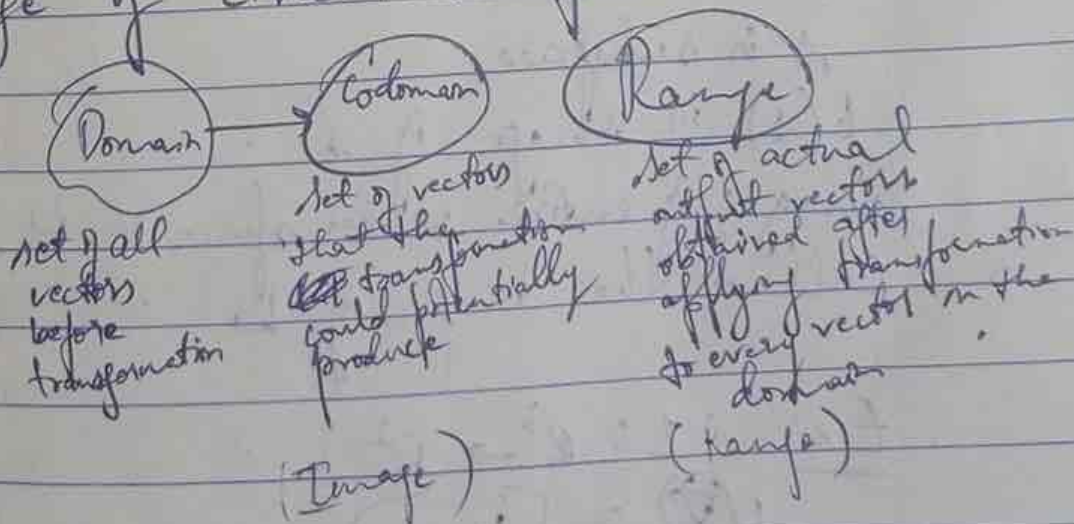 Domain
Codomain
Range
set of all
vectors
before
transformation
set of vectors
that the
transformation
could potentially
produce
(Image)
set of actual
output vectors
obtained after
applying transformation
to every vector in the
domain
(Range)